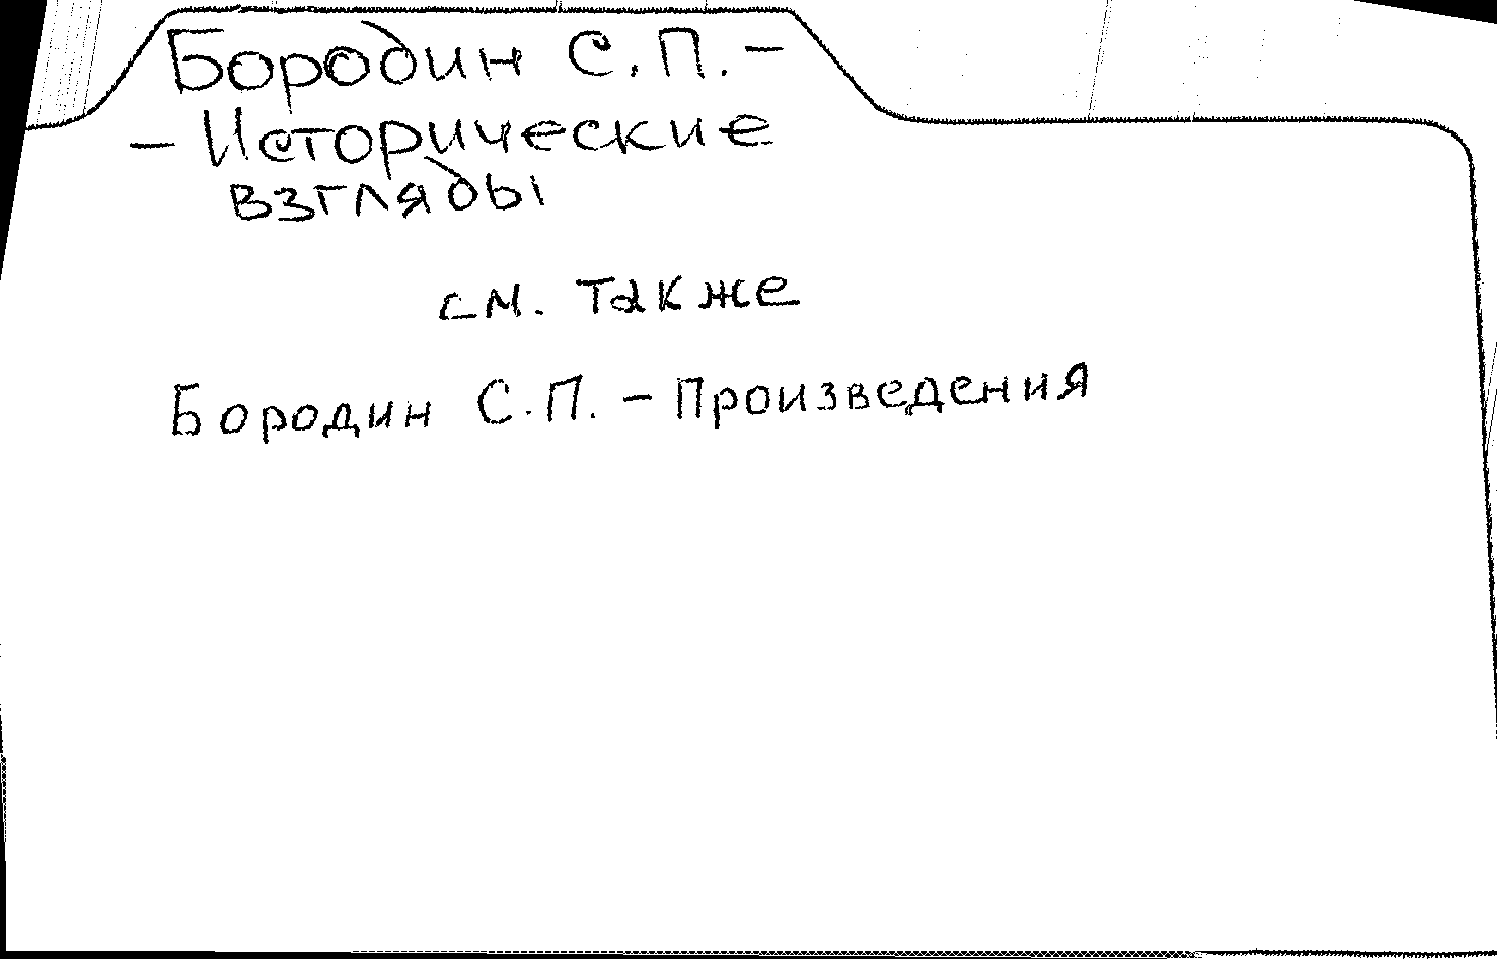 Бородин С.П. –
– Исторические
взгляды
см. также
Бородин С.П. – Произведения